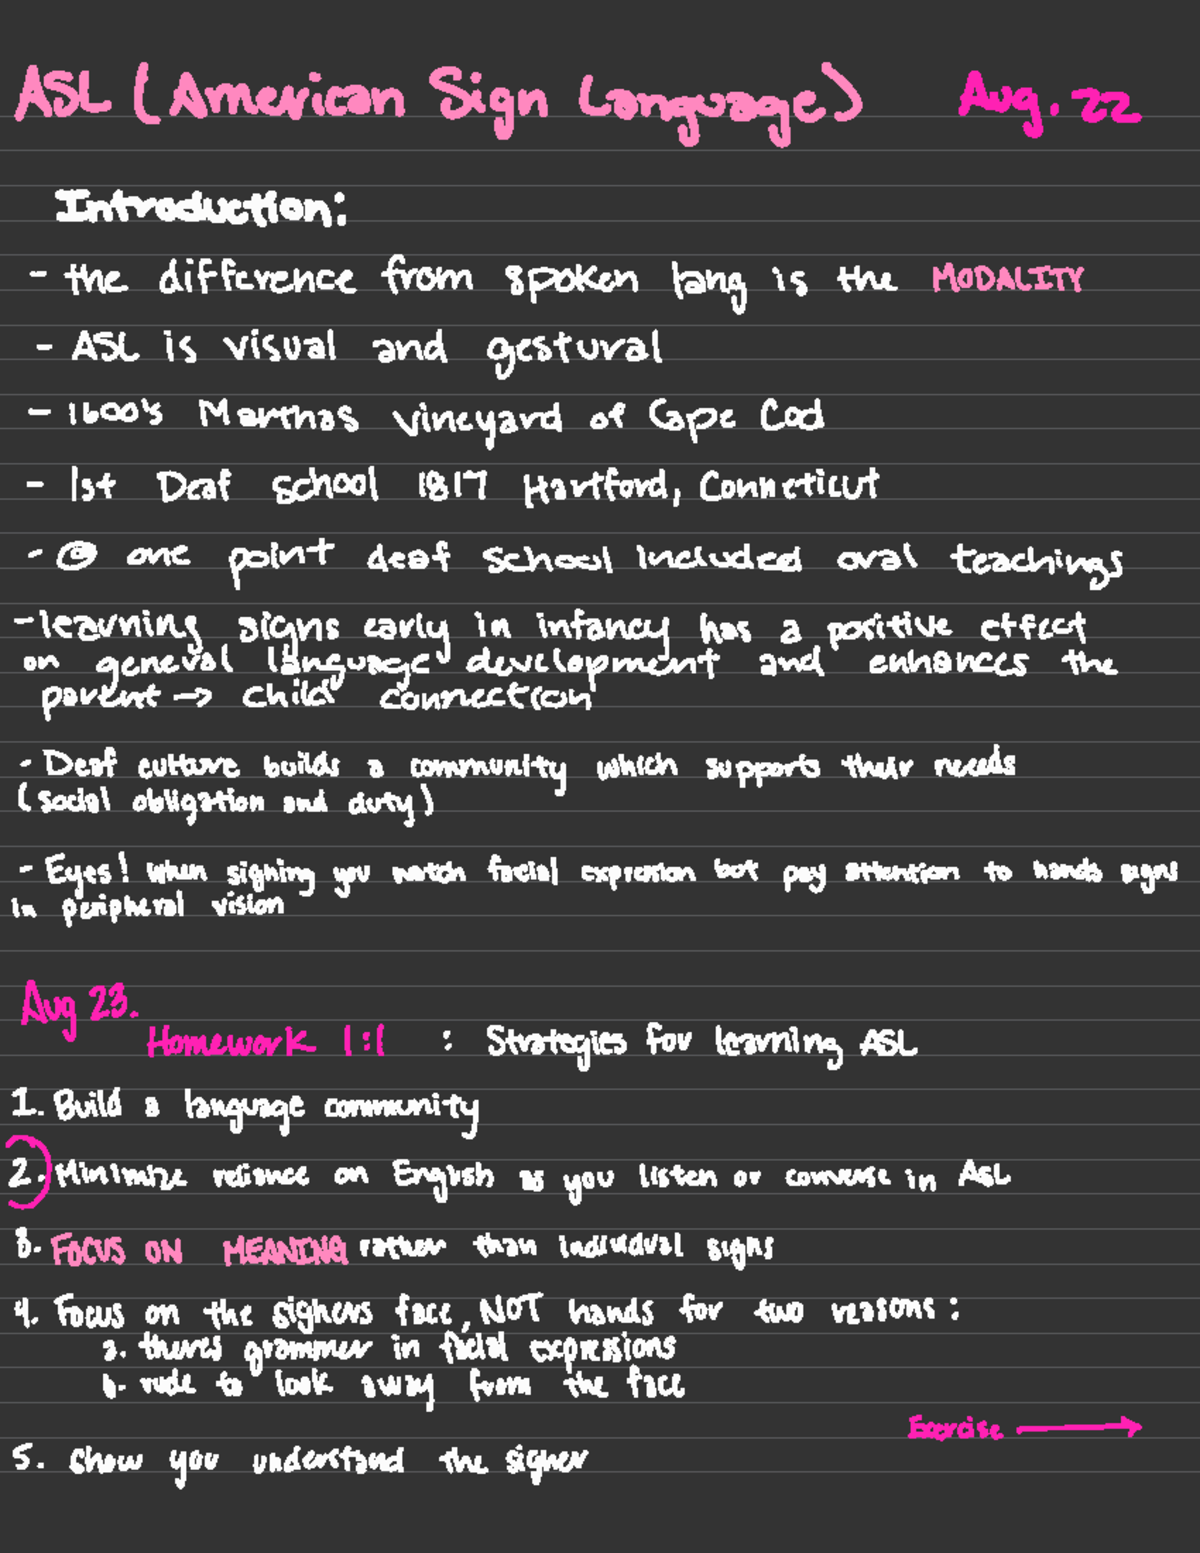 ASL (American Sign Language) Aug. 22
Introduction:
- the difference from spoken lang is the MODALITY
- ASL is visual and gestural
- 1600's Marthas vineyard of Cape Cod
- 1st Deaf school 1817 Hartford, Conneticut
- @ one point deaf school included oral teachings
- learning signs early in infancy has a positive effect
on general language development and enhances the
parent → child connection
- Deaf culture builds a community which supports their needs
(social obligation and duty)
- Eyes! When signing you watch facial expression but pay attention to hands signs
in peripheral vision
Aug 23.
Homework 1:1 : Strategies for learning ASL
1. Build a language community
2. Minimize reliance on English as you listen or converse in ASL
3. FOCUS ON MEANING rather than individual signs
4. Focus on the signers face, NOT hands for two reasons:
a. theres grammer in facial expressions
b. rude to look away from the face
Exercise →
5. Show you understand the signer